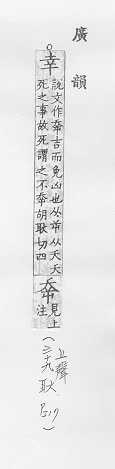 廣韻
幸
說文作㚔吉而免凶也从屰从夭夭
死之事故死謂之不㚔胡耿切四
㚔
見上
注
(上聲
三十九耿